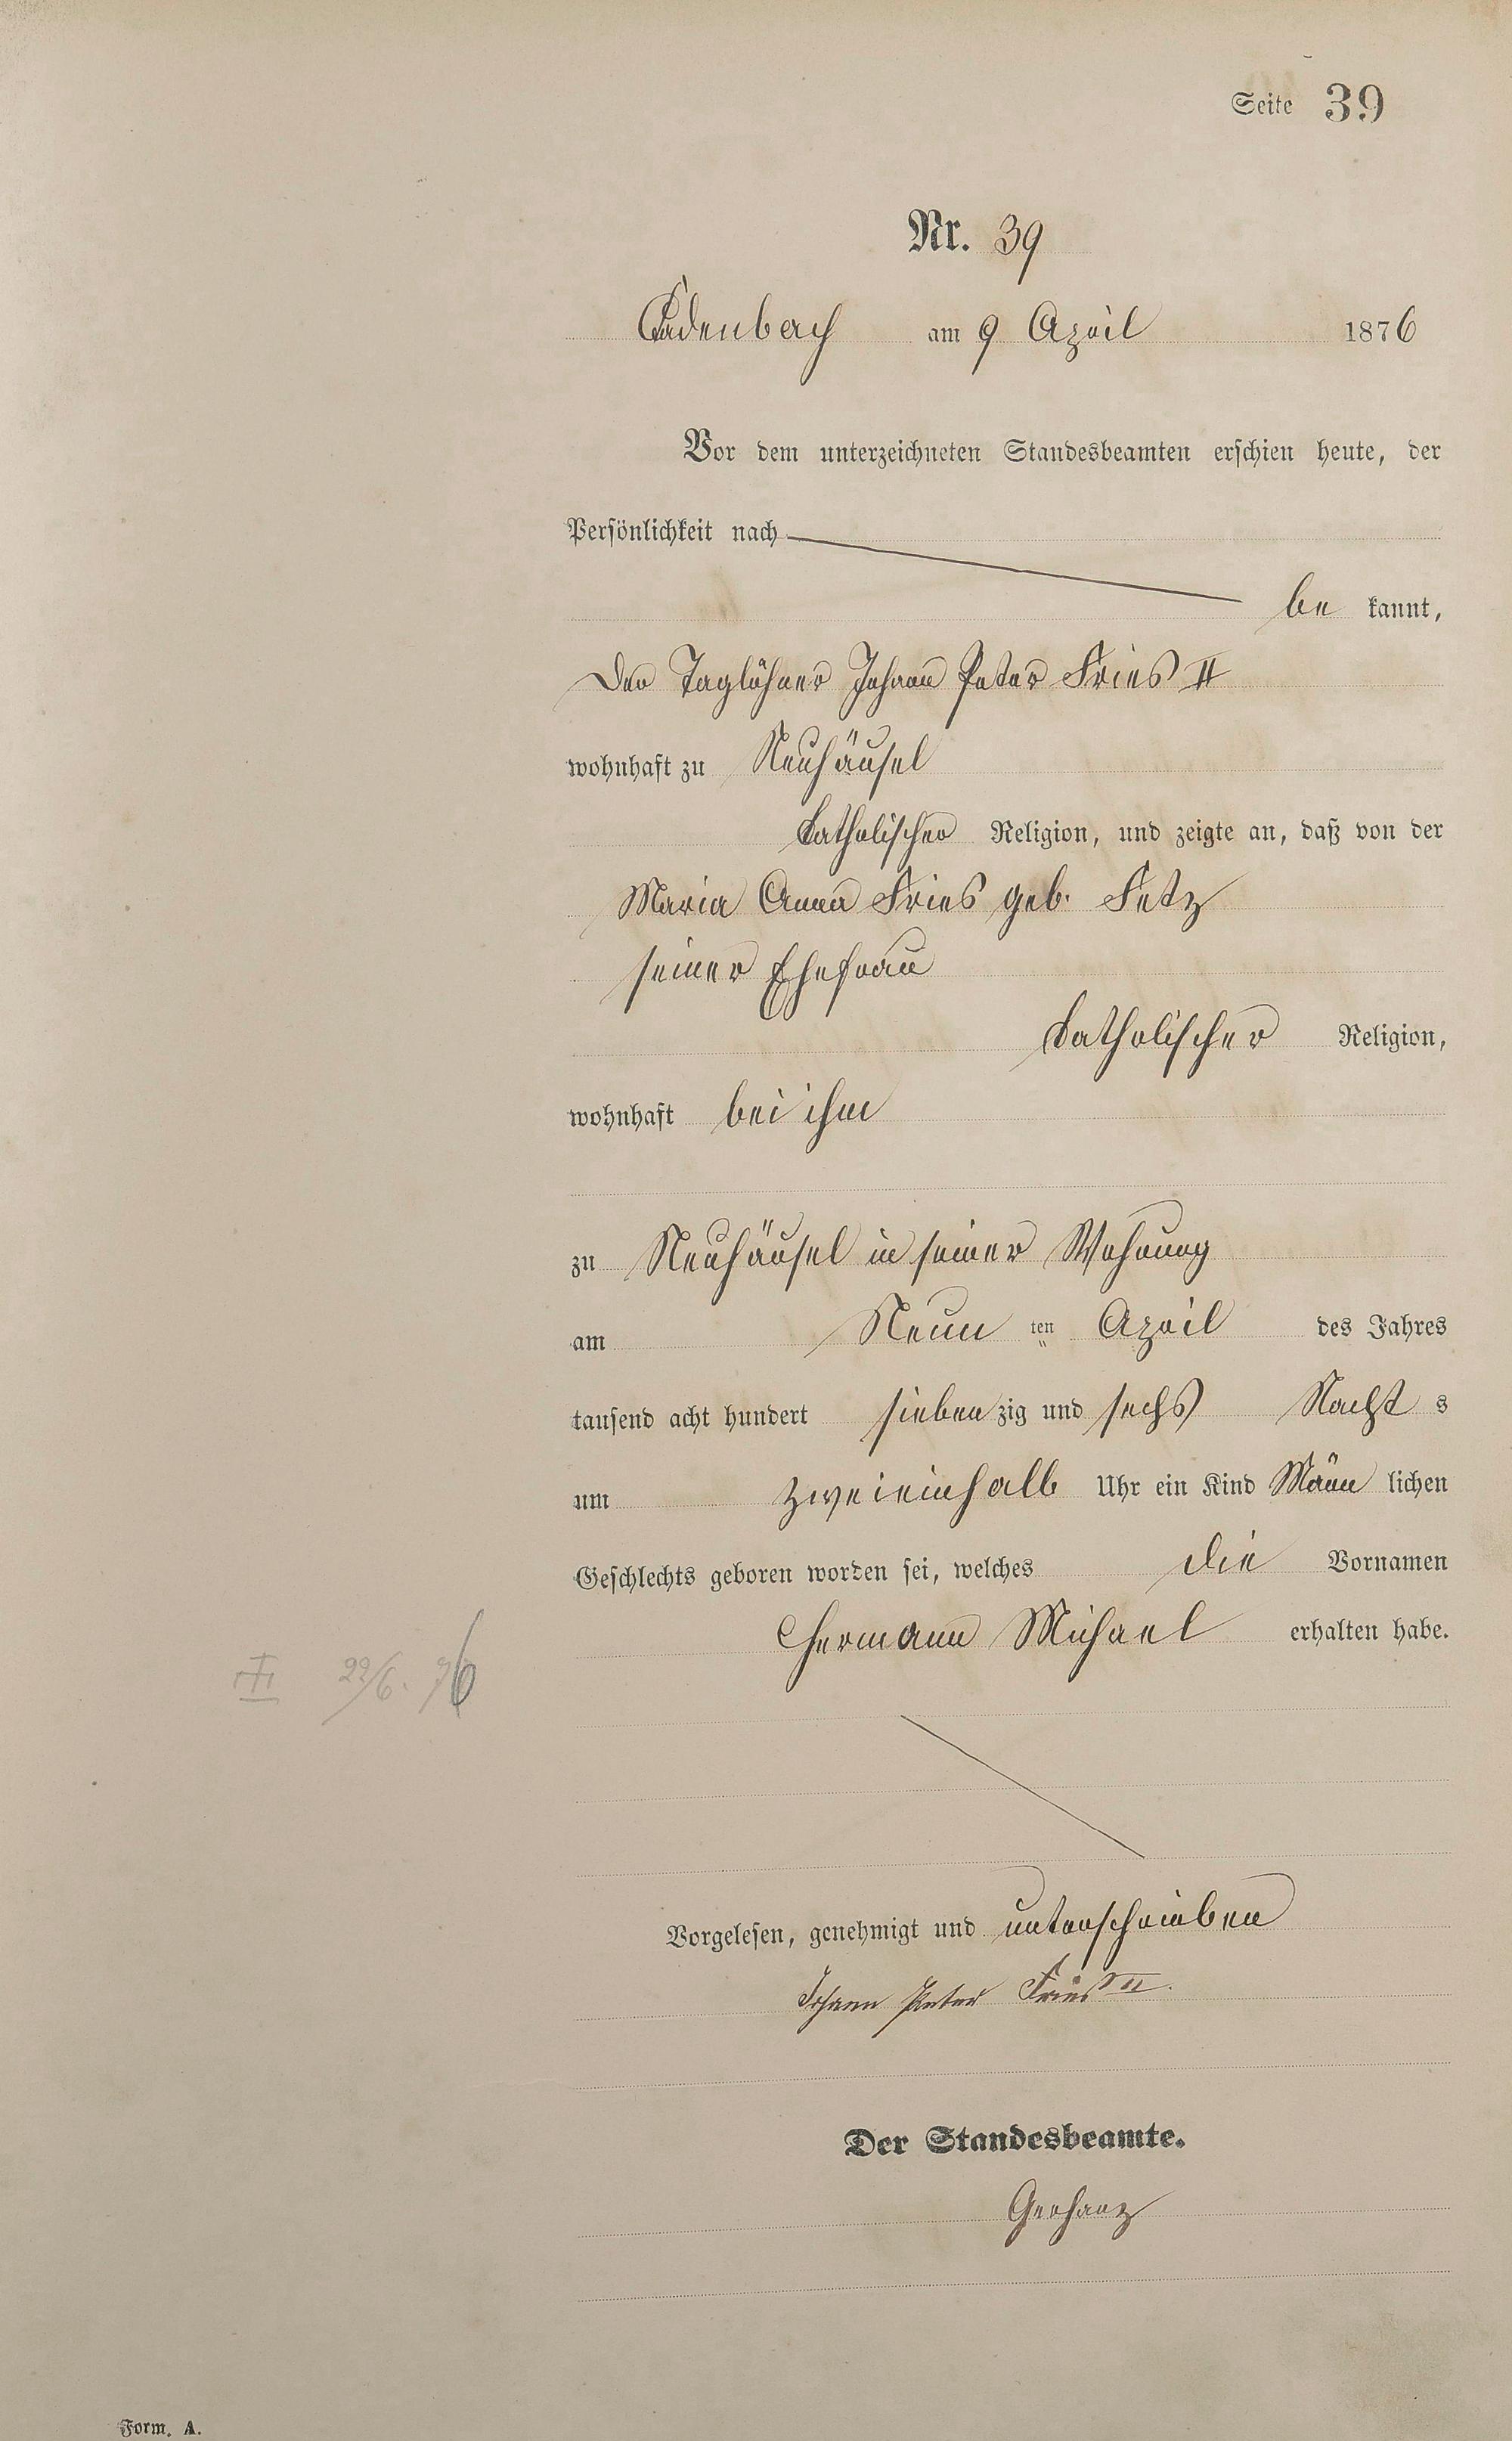 Seite 39
Nr. 39
Cadenbach am 9 April 1876
Vor dem unterzeichneten Standesbeamten erschien heute, der
Persönlichkeit nach
be kannt,
Der Taglöhner Johann Peter Fries II
wohnhaft zu Neuhäusel
katholischer Religion, und zeigte an, daß von der
Maria Anna Fries geb. Fetz
seiner Ehefrau
katholischer Religion,
wohnhaft bei ihm
zu Neuhäusel in seiner Wohnung
am Neun ten April des Jahres
tausend acht hundert sieben zig und sechs Nacht s
um zweieinhalb Uhr ein Kind Männ lichen
Geschlechts geboren worden sei, welches die Vornamen
Hermann Michael erhalten habe.
22/6. 76
Vorgelesen, genehmigt und unterschrieben
Johann Peter Fries II.
Der Standesbeamte.
Gerharz
Form. A.